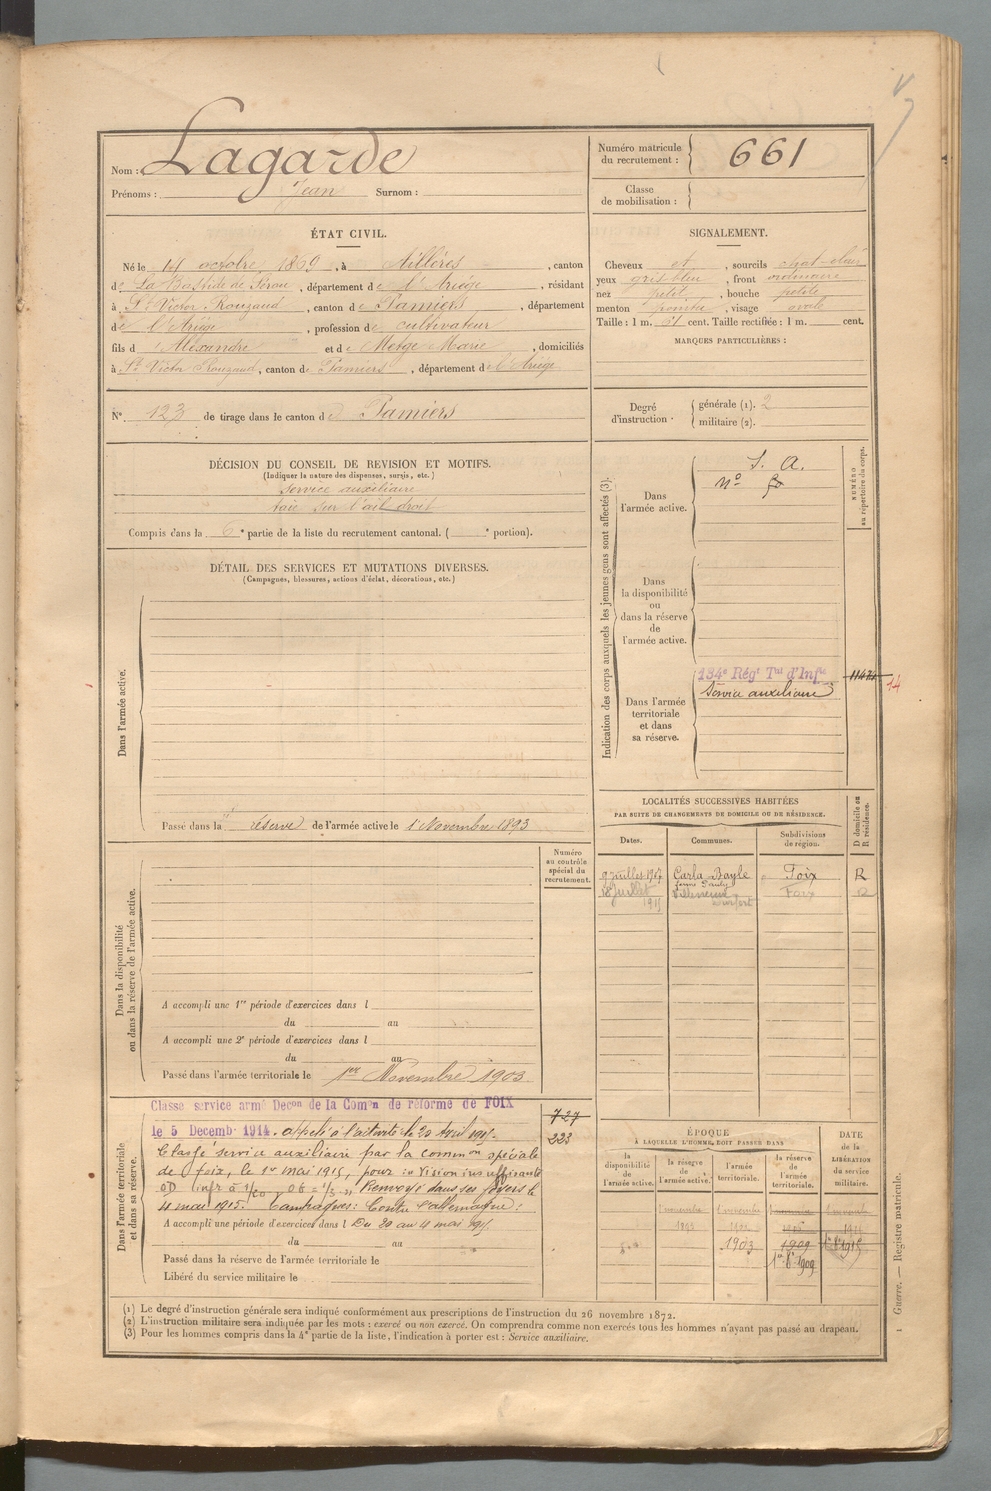 Nom : Lagarde
Prénoms : Jean Surnom :
Numéro matricule du recrutement : 661
Classe de mobilisation :
ÉTAT CIVIL.
Né le 14 octobre 1869, à Aillères, canton
de La Bastide de Sérou, département de l'Ariège, résidant
à St Victor Rouzaud, canton de Pamiers, département
de l'Ariège, profession de cultivateur
fils d'Alexandre et de Metge Marie, domiciliés
à St Victor Rouzaud, canton de Pamiers, département de l'Ariège
SIGNALEMENT.
Cheveux et, sourcils chat-clair
yeux gris-bleu, front ordinaire
nez petit, bouche petite
menton pointu, visage ovale
Taille : 1 m. 61 cent. Taille rectifiée : 1 m. cent.
MARQUES PARTICULIÈRES :
N° 123 de tirage dans le canton de Pamiers
Degré d'instruction. générale (1). 2
militaire (2).
DÉCISION DU CONSEIL DE REVISION ET MOTIFS.
(Indiquer la nature des dispenses, sursis, etc.)
Service auxiliaire
taie sur l'œil droit
Compris dans la 6e partie de la liste du recrutement cantonal. ( e portion).
DÉTAIL DES SERVICES ET MUTATIONS DIVERSES.
(Campagnes, blessures, actions d'éclat, décorations, etc.)
Dans l'armée active.
Passé dans la réserve de l'armée active le 1er Novembre 1893
Indication des corps auxquels les jeunes gens sont affectés (3).
NUMÉRO au répertoire du corps.
Dans l'armée active.
S. A.
n°
Dans la disponibilité ou dans la réserve de l'armée active.
Dans l'armée territoriale et dans sa réserve.
134e Régt Tal d'Infie
Service auxiliaire
14
LOCALITÉS SUCCESSIVES HABITÉES
PAR SUITE DE CHANGEMENTS DE DOMICILE OU DE RÉSIDENCE.
Dates. Communes. Subdivisions de région. D domicile ou R résidence.
9 juillet 1907 Carla Bayle Foix R
Juillet 1915 Foix R
Dans la disponibilité ou dans la réserve de l'armée active.
Numéro au contrôle spécial du recrutement.
A accompli une 1re période d'exercices dans l
du au
A accompli une 2e période d'exercices dans l
du au
Passé dans l'armée territoriale le 1er Novembre 1903
Dans l'armée territoriale et dans sa réserve.
Classe service armé Decon de la Comon de réforme de FOIX
le 5 Decemb. 1914. appelé à l'activité le 20 Avril 1915.
Classé service auxiliaire par la common spéciale
de Foix, le 1er mai 1915, pour : Vision insuffisante
OD infr à 1/20 OG = 1/3. Renvoyé dans ses foyers le
4 mai 1915. Campagnes : Contre l'allemagne :
A accompli une période d'exercices dans l Du 20 au 4 mai 1915.
du au
Passé dans la réserve de l'armée territoriale le
Libéré du service militaire le
727
223
ÉPOQUE
À LAQUELLE L'HOMME DOIT PASSER DANS
DATE de la LIBÉRATION du service militaire.
la disponibilité de l'armée active. la réserve de l'armée active. l'armée territoriale. la réserve de l'armée territoriale.
1 novembre 1893
1903 1909
1er 8bre 1909
(1) Le degré d'instruction générale sera indiqué conformément aux prescriptions de l'instruction du 26 novembre 1872.
(2) L'instruction militaire sera indiquée par les mots : exercé ou non exercé. On comprendra comme non exercés tous les hommes n'ayant pas passé au drapeau.
(3) Pour les hommes compris dans la 4e partie de la liste, l'indication à porter est : Service auxiliaire.
Guerre. — Registre matricule.